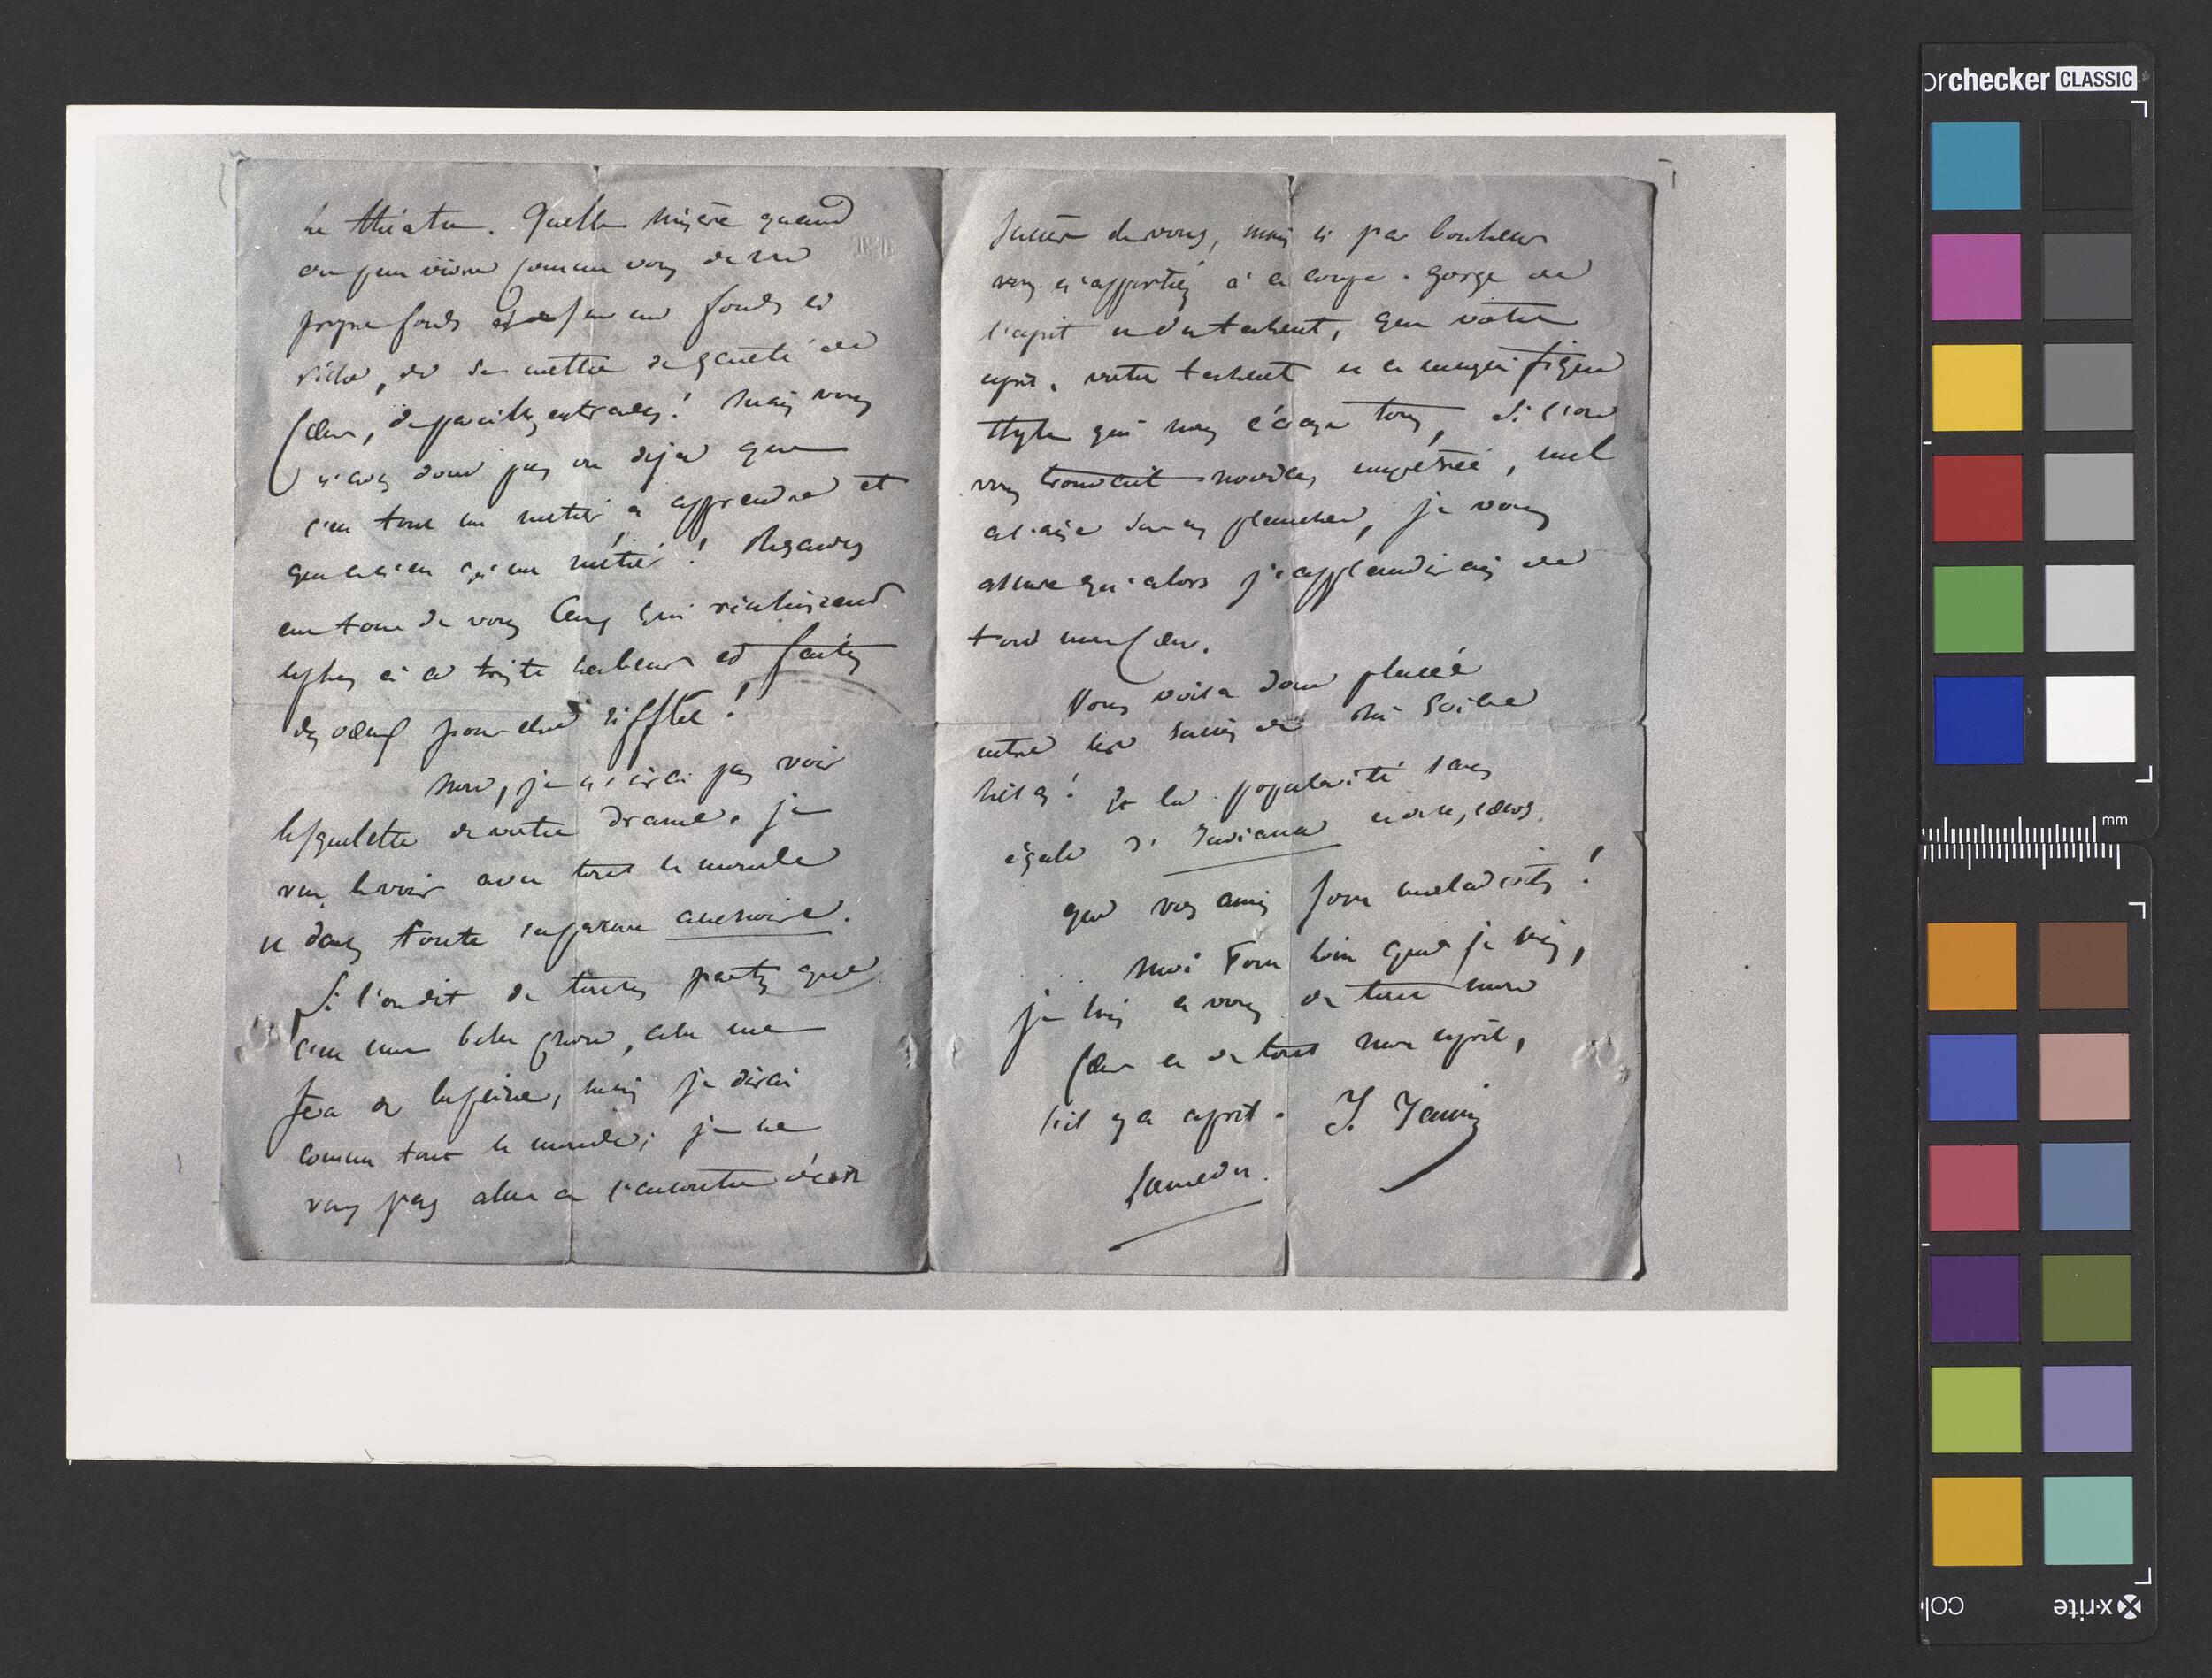 le théatre. Quelle misère quand
on peut vivre comme vous de son
propre fonds et sur un fonds si
riche, de se mettre de gaieté de
cœur, de pareilles entraves! Mais vous
n'avez donc pas vu déja que
c'est tout un métier à apprendre et
que cela n'est qu'un métier! Regardez
autour de vous ceux qui réussissent
le plus à ce triste labeur et faites
des vœux pour être sifflée!
Non, je n'irai pas voir
le squelette de votre drame. je
veux le voir avec tout le monde
et dans toute sa parure accessoire.
Si l'on dit de toutes parts que
c'est une belle chose, cela me
fera de la peine, mais je dirai
comme tout le monde; je ne
veux pas aller à l'encontre d'un
succès de vous, mais si par bonheur
vous n'apportiez à ce coupe-gorge de
l'esprit et du talent, que votre
esprit, votre talent et ce magnifique
style qui nous écrase tous, si l'on
vous trouvait novice, empêtrée, mal
à l'aise sur ces planches, je vous
assure qu'alors j'applaudirais de
tout mon cœur.
Vous voilà donc placée
entre les succès de Mr Scribe
hélas! et la popularité sans
égale d'Indiana
que vos amis sont maladroits!
Moi tout loin que je suis,
je suis à vous de tout mon
cœur et de tout mon esprit,
s'il y a esprit. J. Janin
Samedi.
orchecker CLASSIC
mm
x-rite
col